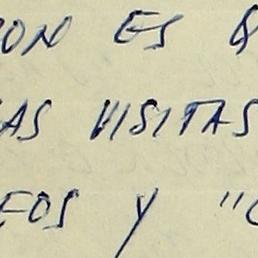 ON ES
AS VISITAS
EOS Y "C